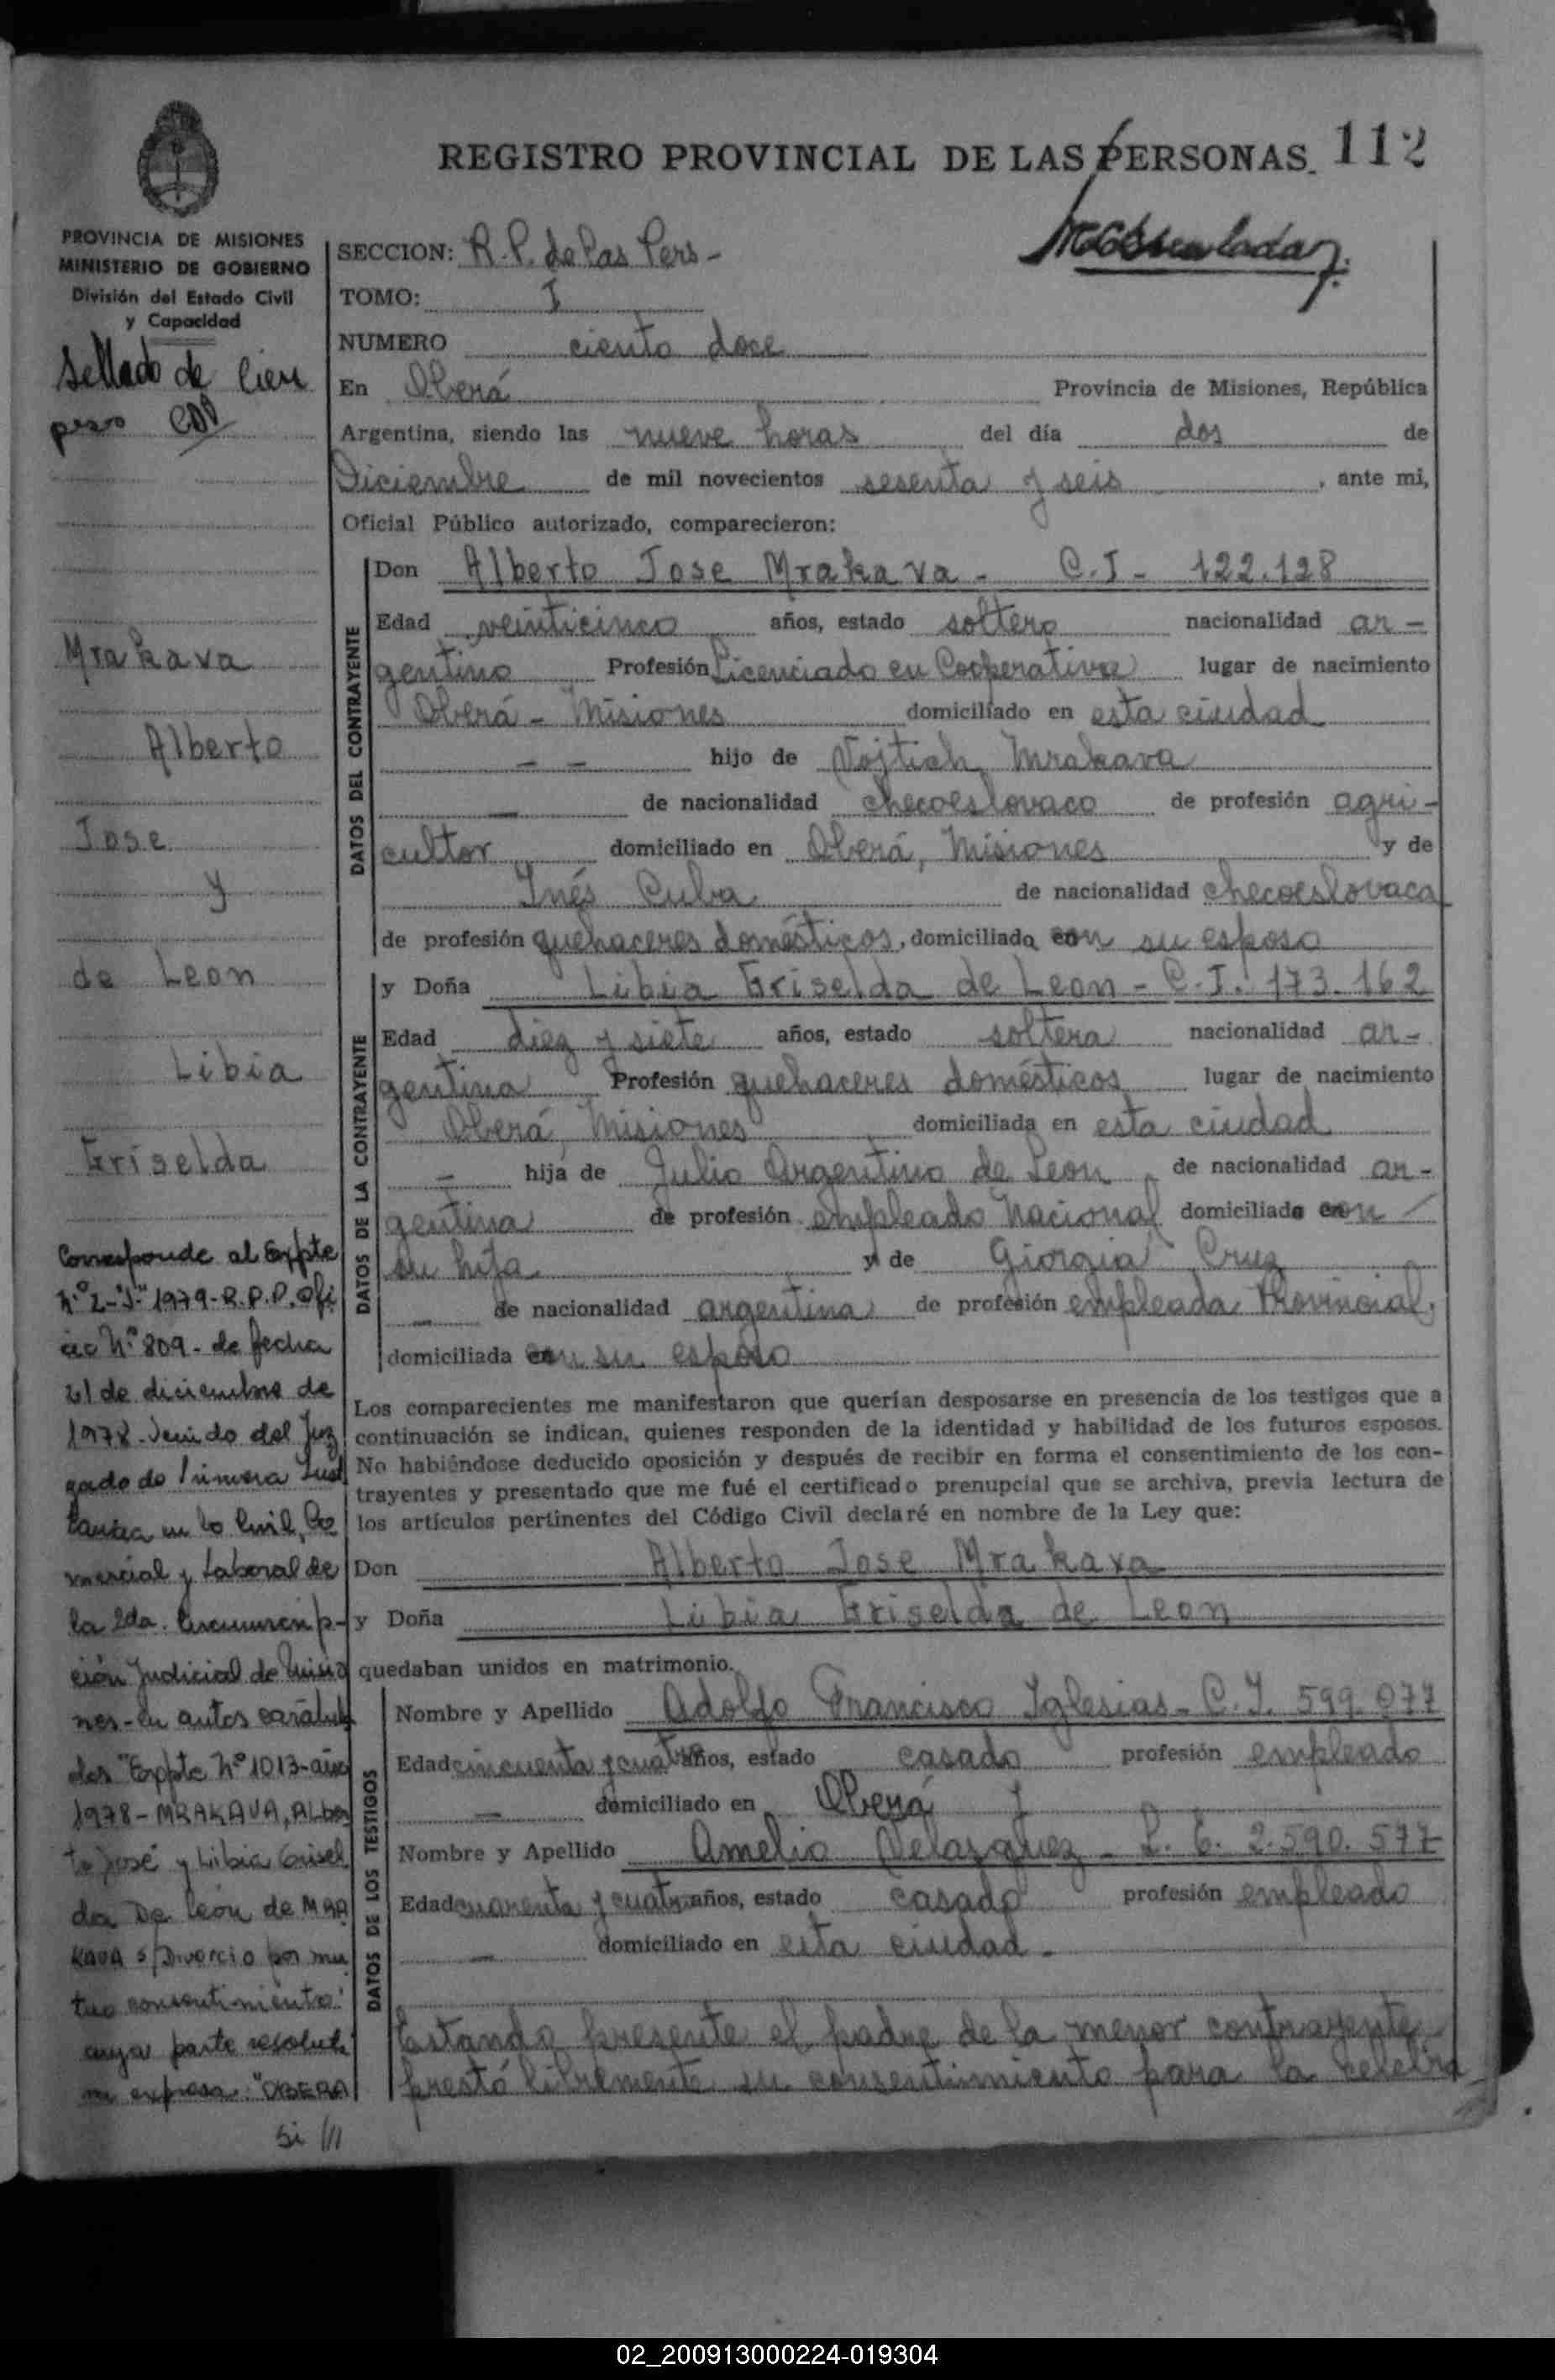 REGISTRO PROVINCIAL DE LAS PERSONAS. 112
PROVINCIA DE MISIONES
MINISTERIO DE GOBIERNO
División del Estado Civil
y Capacidad
Sellado de Cien
peso
Mrakava
Alberto
Jose
y
de Leon
Libia
Griselda
Corresponde al Expte
Nº 2-"J"-1979-R.P.P. Ofi
cio Nº 809- de fecha
21 de diciembre de
1978- Venido del Juz
gado de Primera Inst
tancia en lo Civil, Co
mercial y Laboral de
la 2da. Circunscrip-
ción Judicial de Misio
nes- en autos caratula
dos "Expte Nº 1013-año
1978- MRAKAVA, Alber
to José y Libia Grisel
da De León de MRA
KAVA s/Divorcio por mu
tuo consentimiento"
cuya parte resoluti
va expresa: "OBERA
Si ///
SECCION: R.P. de las Pers-
TOMO: I
NUMERO ciento doce
En Oberá Provincia de Misiones, República
Argentina, siendo las nueve horas del día dos de
Diciembre de mil novecientos sesenta y seis, ante mi,
Oficial Público autorizado, comparecieron:
DATOS DEL CONTRAYENTE
Don Alberto Jose Mrakava - C.I - 122.128
Edad veinticinco años, estado soltero nacionalidad ar-
gentino Profesión Licenciado en Cooperativa lugar de nacimiento
Oberá - Misiones domiciliado en esta ciudad
- - hijo de Vojtiah Mrakava
- de nacionalidad checoeslovaco de profesión agri-
cultor domiciliado en Oberá, Misiones y de
Inés Cuba de nacionalidad checoeslovaca
de profesión quehaceres domésticos, domiciliada con su esposo
DATOS DE LA CONTRAYENTE
y Doña Libia Griselda de Leon - C.I. 173.162
Edad diez y siete años, estado soltera nacionalidad ar-
gentina Profesión quehaceres domésticos lugar de nacimiento
Oberá, Misiones domiciliada en esta ciudad
- hija de Julio Argentino de Leon de nacionalidad ar-
gentina de profesión empleado Nacional domiciliado con
su hija y de Giorgia Cruz
- de nacionalidad argentina de profesión empleada Provincial,
domiciliada con su esposo
Los comparecientes me manifestaron que querían desposarse en presencia de los testigos que a
continuación se indican, quienes responden de la identidad y habilidad de los futuros esposos.
No habiéndose deducido oposición y después de recibir en forma el consentimiento de los con-
trayentes y presentado que me fué el certificado prenupcial que se archiva, previa lectura de
los artículos pertinentes del Código Civil declaré en nombre de la Ley que:
Don Alberto Jose Mrakava
y Doña Libia Griselda de Leon
quedaban unidos en matrimonio.
DATOS DE LOS TESTIGOS
Nombre y Apellido Adolfo Francisco Iglesias - C.I. 599.077
Edad cincuenta y cuatro años, estado casado profesión empleado
- domiciliado en Oberá y
Nombre y Apellido Amelio Velazquez - L. E. 2.590.577
Edad cuarenta y cuatro años, estado casado profesión empleado
- domiciliado en esta ciudad.
Estando presente el padre de la menor contrayente
prestó libremente su consentimiento para la celebra
02_200913000224-019304